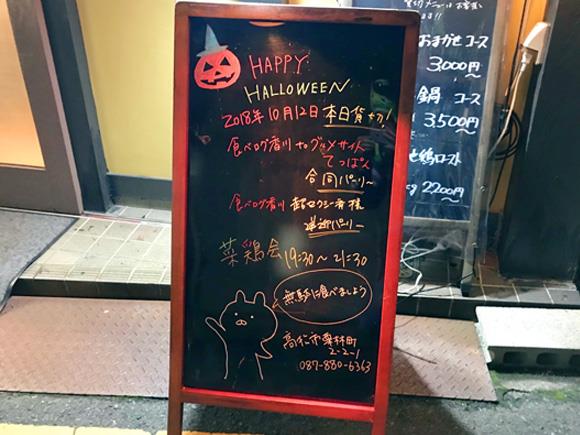 HAPPY
HALLOWEEN
2018年10月12日 本日貸切!
食べログ香川 セグルメサイト
てっぱん
合同パーリー
食べログ香川 超セクシー 様
菜鶏会 19:30～21:30
無駄に食べましょう
高松市栗林町
2-2-1
087-880-6363
おまかせコース
3,000円
鍋 コース
3,500円
鶏ロスト
2200円